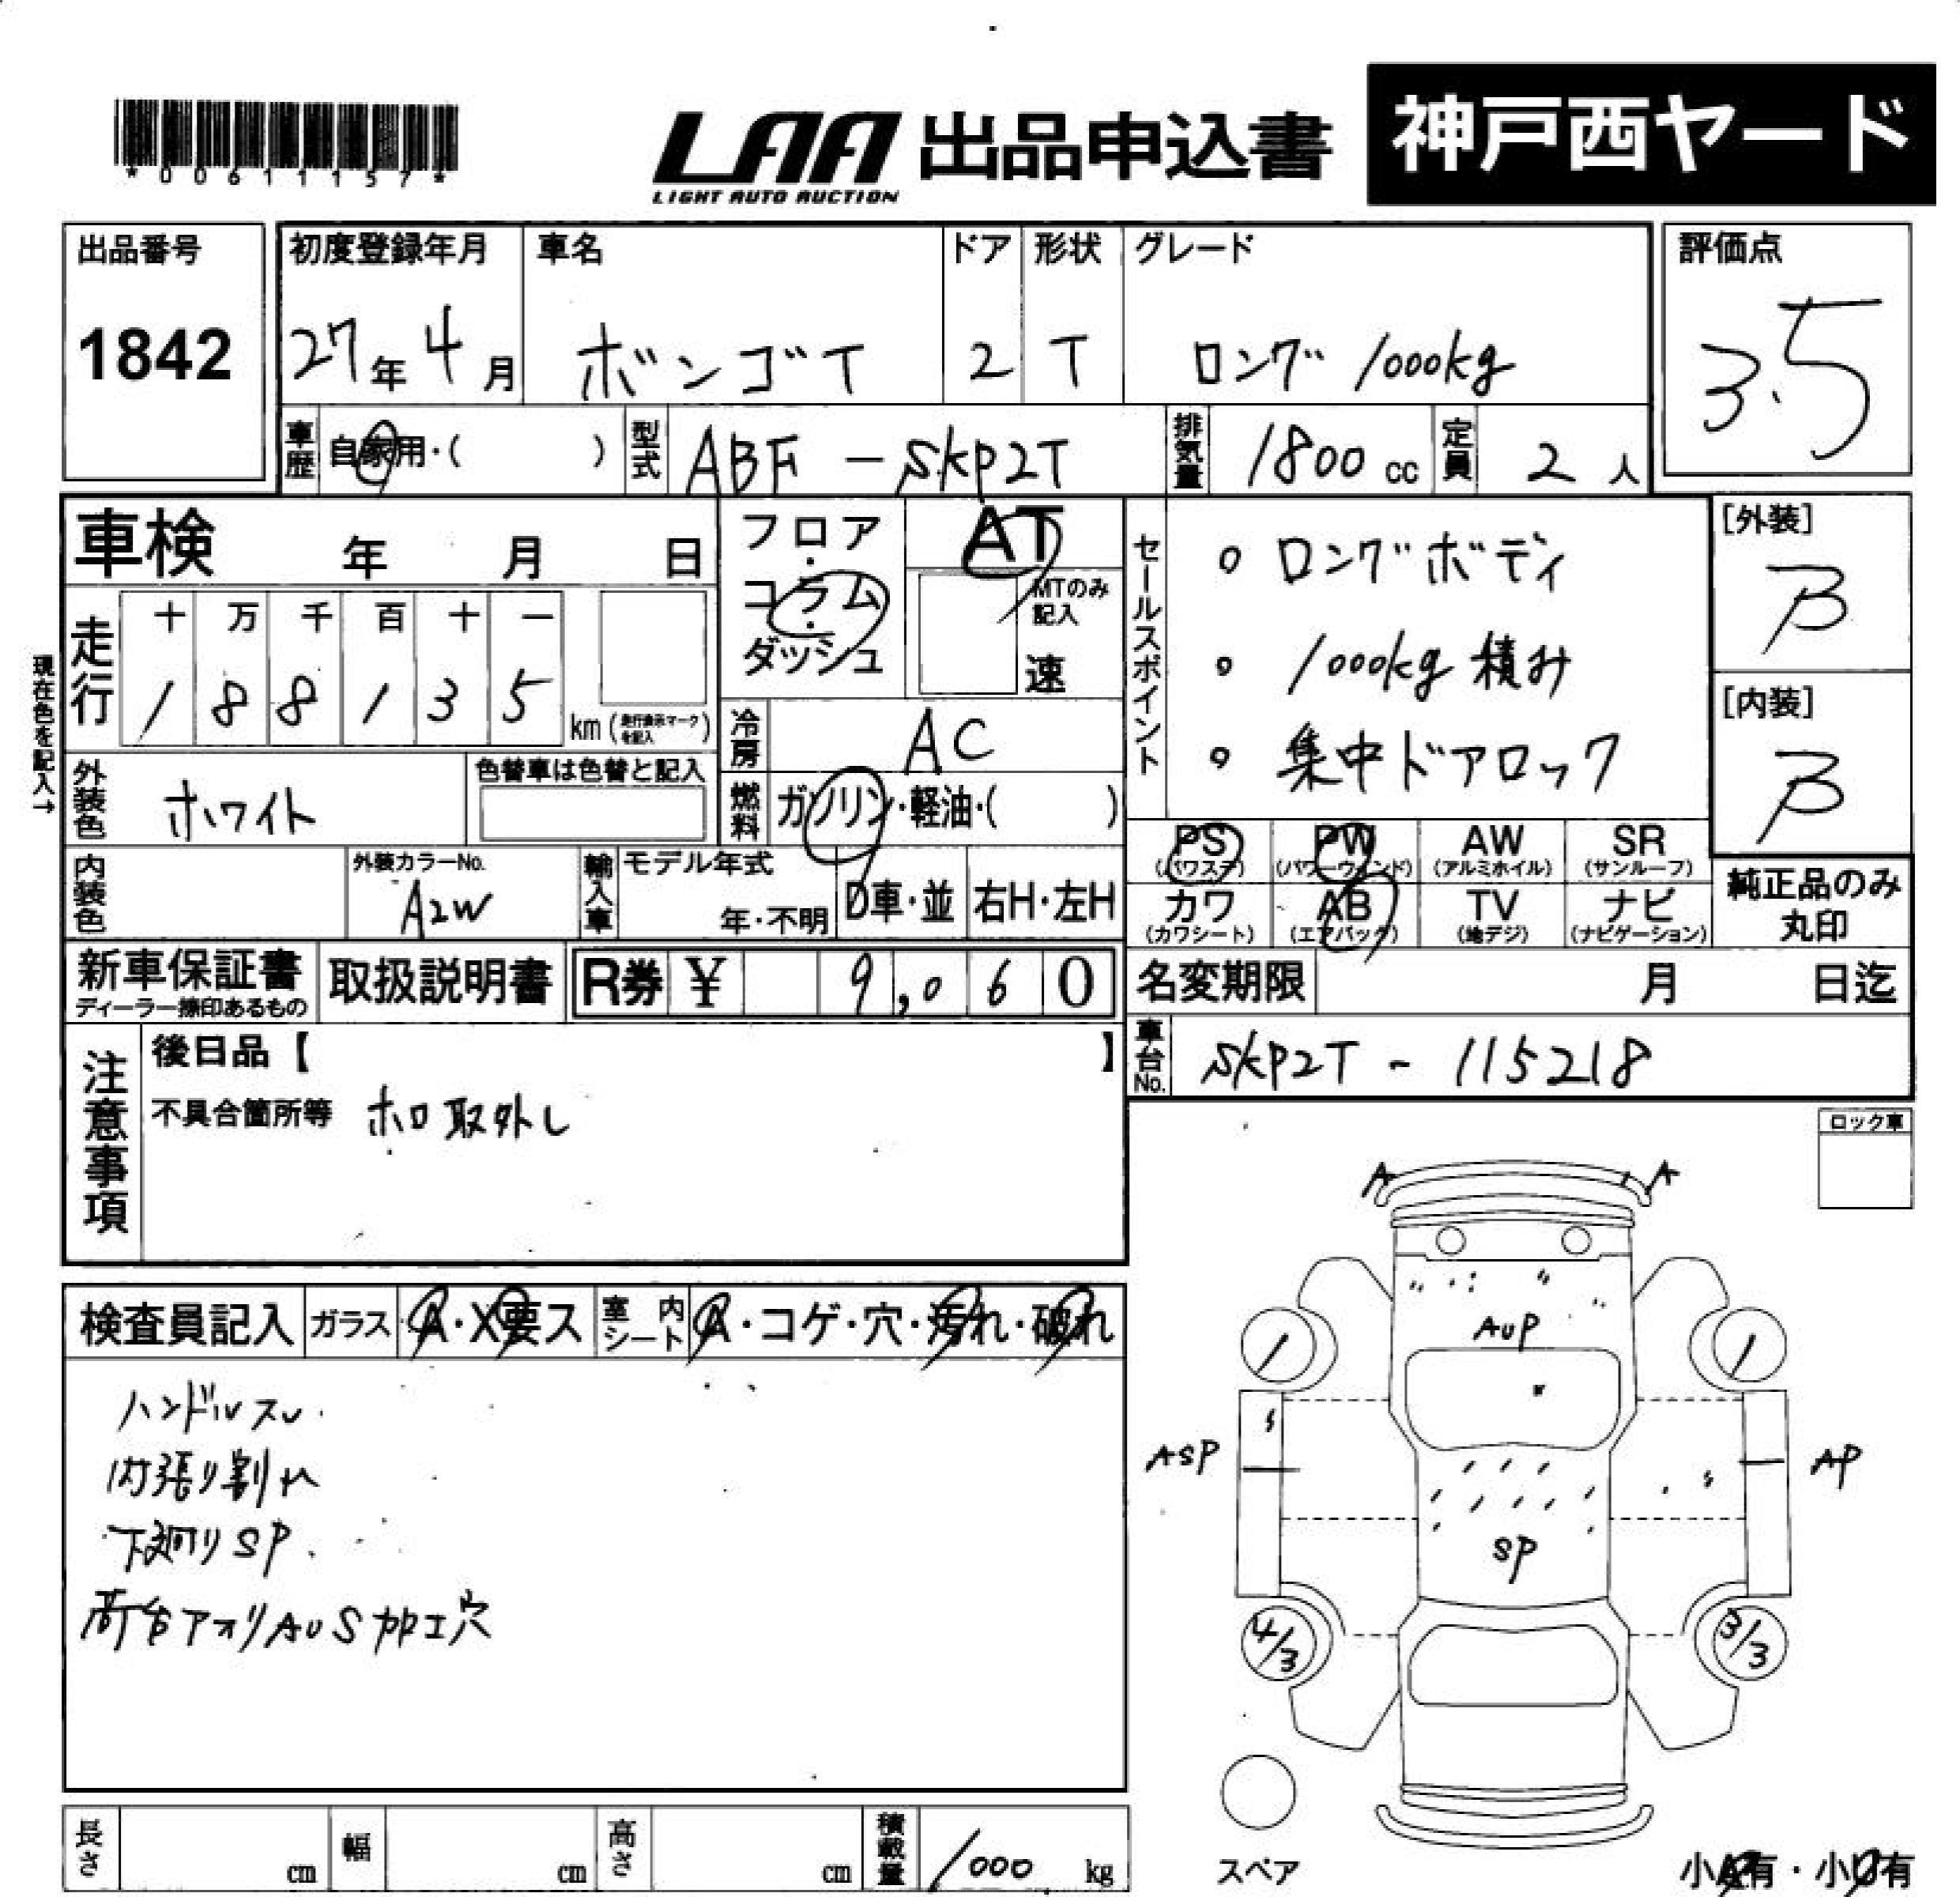 *00611157*
LAA 出品申込書 神戸西ヤード
LIGHT AUTO AUCTION
出品番号
1842
初度登録年月
27年4月
車名
ボンゴT
ドア
2
形状
T
グレード
ロング 1000kg
評価点
3.5
車歴 自家用・( )
型式 ABF-SKP2T
排気量 1800cc
定員 2人
車検 年 月 日
フロア・コラム・ダッシュ
AT
MTのみ記入
速
セールスポイント
○ ロングボディ
○ 1000kg 積み
○ 集中ドアロック
[外装]
B
[内装]
B
現在色を記入→
走行
十 万 千 百 十 一
1 8 8 1 3 5
km(走行表示マークを記入)
冷房 AC
外装色 ホワイト
色替車は色替と記入
燃料 ガソリン・軽油・( )
PS (パワステ)
PW (パワーウィンド)
AW (アルミホイル)
SR (サンルーフ)
カワ (カワシート)
AB (エアバック)
TV (地デジ)
ナビ (ナビゲーション)
純正品のみ
丸印
内装色
外装カラーNo.
A2W
輸入車
モデル年式
年・不明
D車・並
右H・左H
新車保証書
ディーラー捺印あるもの
取扱説明書
R券 ¥ 9,060
名変期限 月 日迄
車台No. SKP2T - 115218
注意事項
後日品【 】
不具合箇所等 ホロ取外し
ロック車
A A
検査員記入 ガラス A・X要ス 室内シート A・コゲ・穴・汚れ・破れ
ハンドルスレ
内張り割れ
下廻りSP
荷台アオリAUS加工穴
AUP
/ /
ASP AP
SP
4/3 3/3
スペア
小A有・小U有
長さ cm
幅 cm
高さ cm
積載量 1000 kg